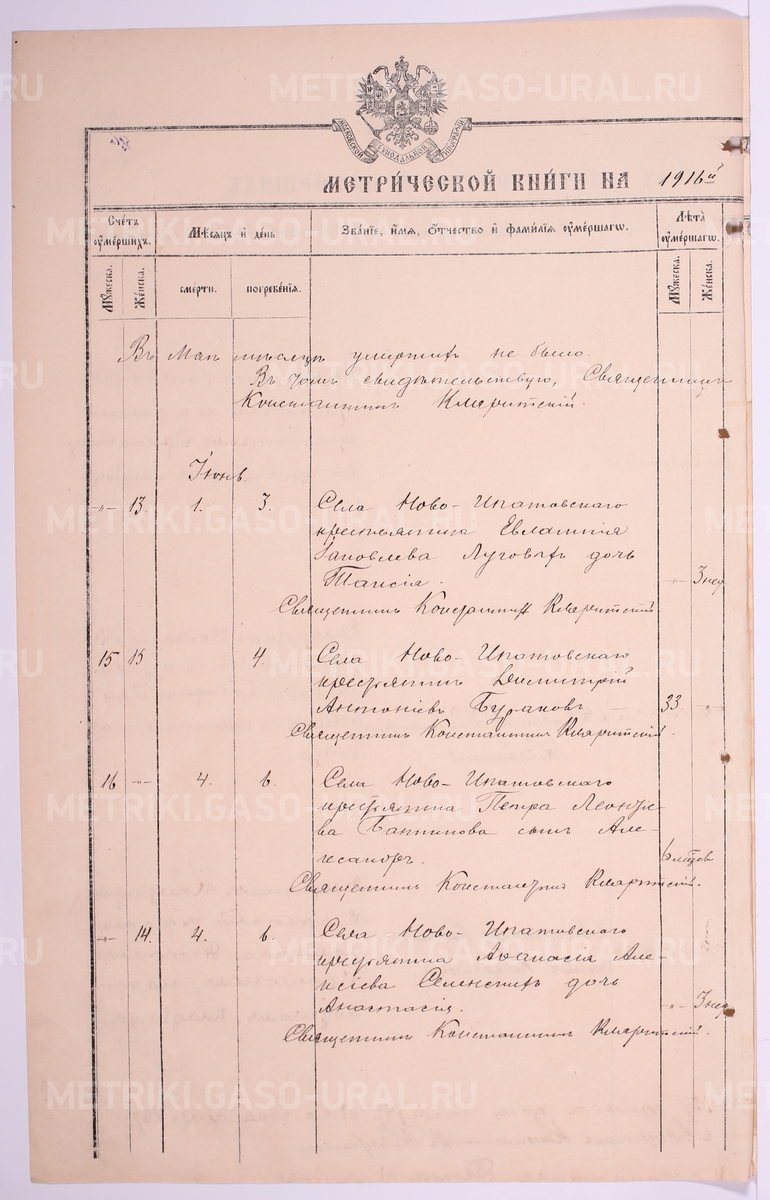 МОСКОВСКОЙ СѴНОДАЛЬНОЙ ТИПОГРАФІИ
МЕТРИ́ЧЕСКОЙ КНИ́ГИ НА 1916й
Сче́тъ ᲂу҆ме́ршихъ.
Мѣсяцъ и҆ де́нь
Зва́нїе, и҆́мѧ, ѻ҆́тчество и҆ фами́лїѧ ᲂу҆ме́ршагѡ.
Лѣ́та ᲂу҆ме́ршагѡ.
Му́жеска.
Же́нска.
сме́рти.
погребе́нїѧ.
Му́жеска.
Же́нска.
Въ Маѣ мѣсяцѣ умершихъ не было.
Въ чемъ свидѣтельствую, Священникъ
Константинъ Кларитскій.
Іюнь
-"- 13. 1. 3. Села Ново-Ипатовскаго
крестьянина Евлампія
Іаковлева Луговыхъ дочь
Таисія. -"- 3 нед
Священникъ Константинъ Кларитскій
15 13 4. Села Ново-Ипатовскаго
крестьянинъ Димитрій
Антоніевъ Бураковъ — 33. -"-
Священникъ Константинъ Кларитскій.
16 -"- 4. 6. Села Ново-Ипатовскаго
крестьянина Петра Леонтіе-
ва сынъ Але-
ксандръ. 6 мѣсцев
Священникъ Константинъ Кларитскій.
-"- 14. 4. 6. Села Ново-Ипатовскаго
крестьянина Аѳанасія Але-
ксіева дочь
Анастасія. -"- 3 нед
Священникъ Константинъ Кларитскій.
METRIKI.GASO-URAL.RU